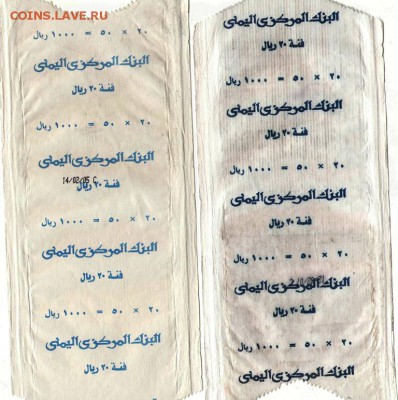 COINS.LAVE.RU
٢٠ × ٥٠ = ١٠٠٠ ريال
البنك المركزي اليمني
فئة ٢٠ ريال
٢٠ × ٥٠ = ١٠٠٠ ريال
البنك المركزي اليمني
14/02/05
فئة ٢٠ ريال
٢٠ × ٥٠ = ١٠٠٠ ريال
البنك المركزي اليمني
فئة ٢٠ ريال
٢٠ × ٥٠ = ١٠٠٠ ريال
البنك المركزي اليمني
فئة ٢٠ ريال
البنك المركزي اليمني
فئة ٢٠ ريال
٢٠ × ٥٠ = ١٠٠٠ ريال
البنك المركزي اليمني
فئة ٢٠ ريال
٢٠ × ٥٠ = ١٠٠٠ ريال
البنك المركزي اليمني
فئة ٢٠ ريال
٢٠ × ٥٠ = ١٠٠٠ ريال
البنك المركزي اليمني
فئة ٢٠ ريال
٢٠ × ٥٠ = ١٠٠٠ ريال
البنك المركزي اليمني